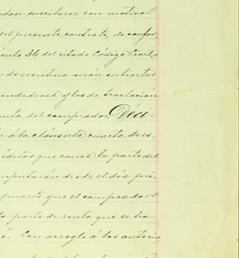 suscitarse con motivo
del presente contrato, de confor
36 del citado Código Civil
de escritura serán cubiertos
vendedores y los de traslación
cuenta del comprador. Déci
a la cláusula cuarta de es
réditos que cause la parte del
computarán desde el día pri
puesto que el comprador
parte de renta que se ha
Con arreglo a los anterio